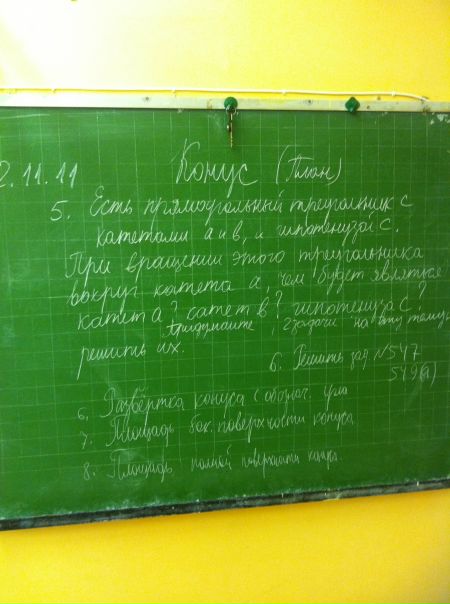 2.11.11 Конус (План)
5. Есть прямоугольный треугольник с
катетами а и в, и гипотенузой с.
При вращении этого треугольника
вокруг катета а, чем будет являться
катет а? катет в? гипотенуза с?
Придумайте, 2 задачи на эту тему
решить их.
6. Решить зад N547
549(а)
6. Развёртка конуса с обознач. угла
7. Площадь бок. поверхности конуса
8. Площадь полной поверхности конуса